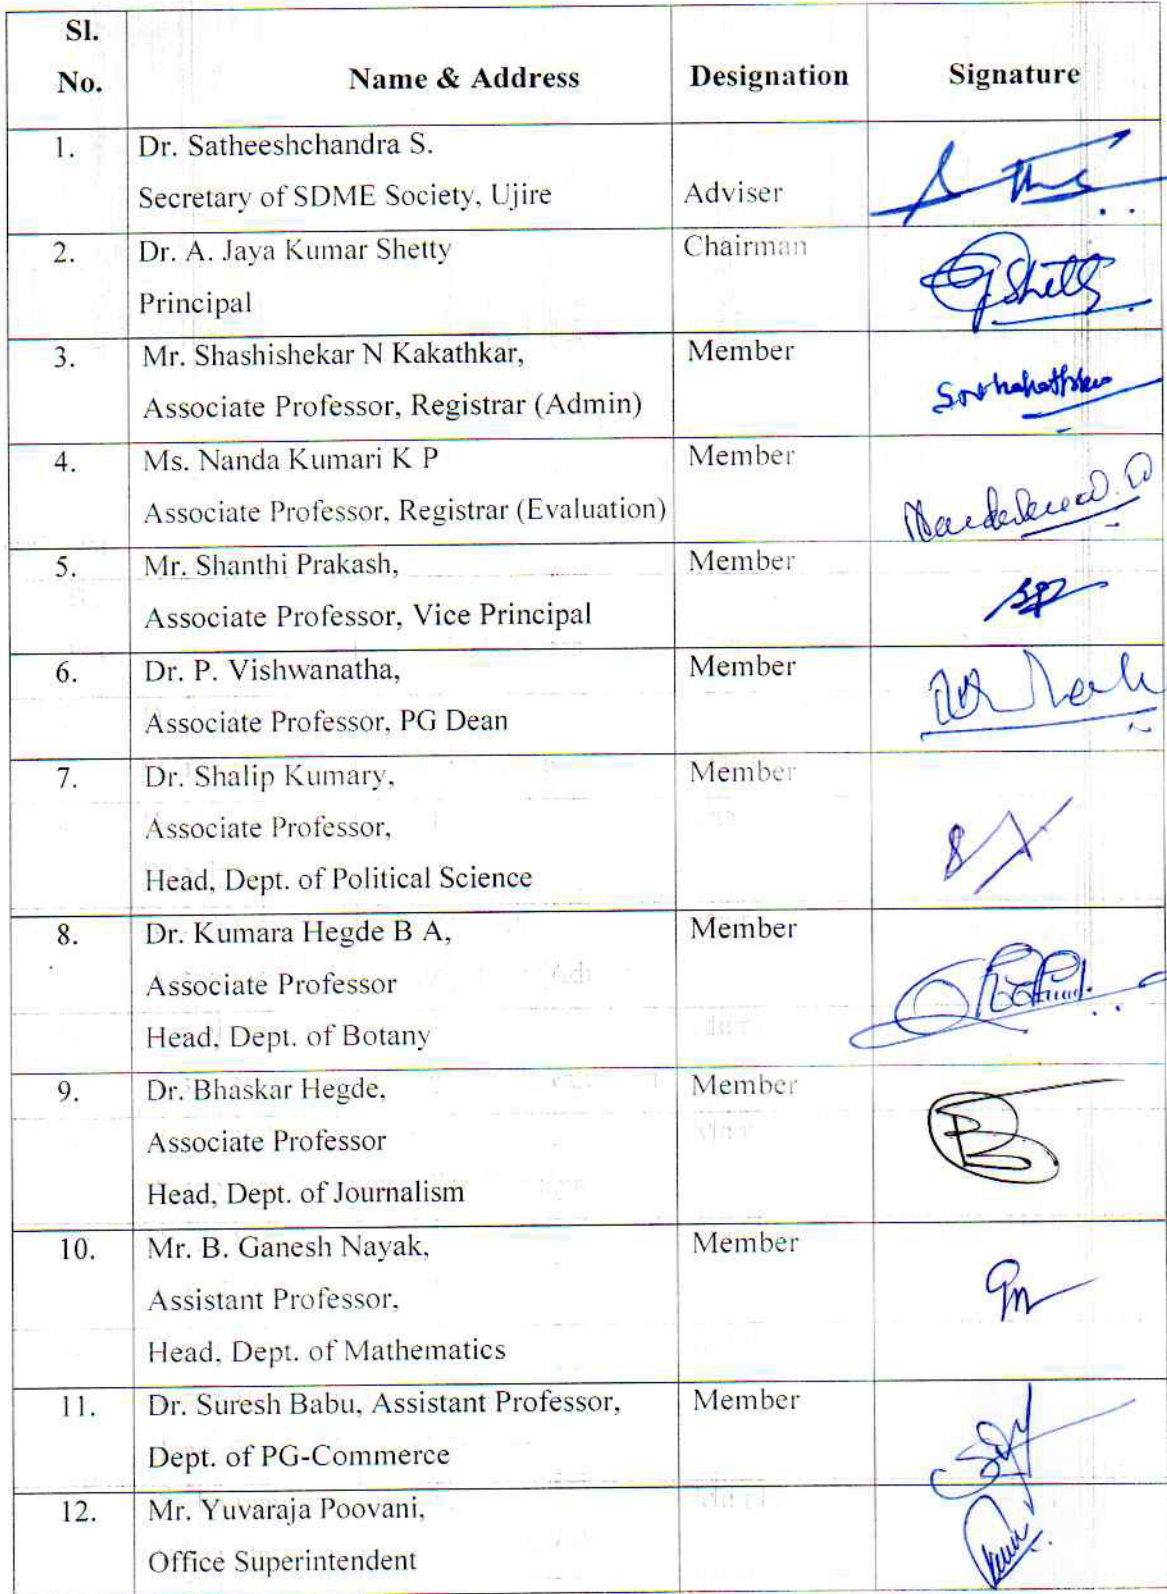 Sl.
No.
Name & Address
Designation
Signature
1.
Dr. Satheeshchandra S.
Secretary of SDME Society, Ujire
Adviser
2.
Dr. A. Jaya Kumar Shetty
Principal
Chairman
3.
Mr. Shashishekar N Kakathkar,
Associate Professor, Registrar (Admin)
Member
4.
Ms. Nanda Kumari K P
Associate Professor, Registrar (Evaluation)
Member
5.
Mr. Shanthi Prakash,
Associate Professor, Vice Principal
Member
6.
Dr. P. Vishwanatha,
Associate Professor, PG Dean
Member
7.
Dr. Shalip Kumary,
Associate Professor,
Head, Dept. of Political Science
Member
8.
Dr. Kumara Hegde B A,
Associate Professor
Head, Dept. of Botany
Member
9.
Dr. Bhaskar Hegde,
Associate Professor
Head, Dept. of Journalism
Member
10.
Mr. B. Ganesh Nayak,
Assistant Professor,
Head, Dept. of Mathematics
Member
11.
Dr. Suresh Babu, Assistant Professor,
Dept. of PG-Commerce
Member
12.
Mr. Yuvaraja Poovani,
Office Superintendent